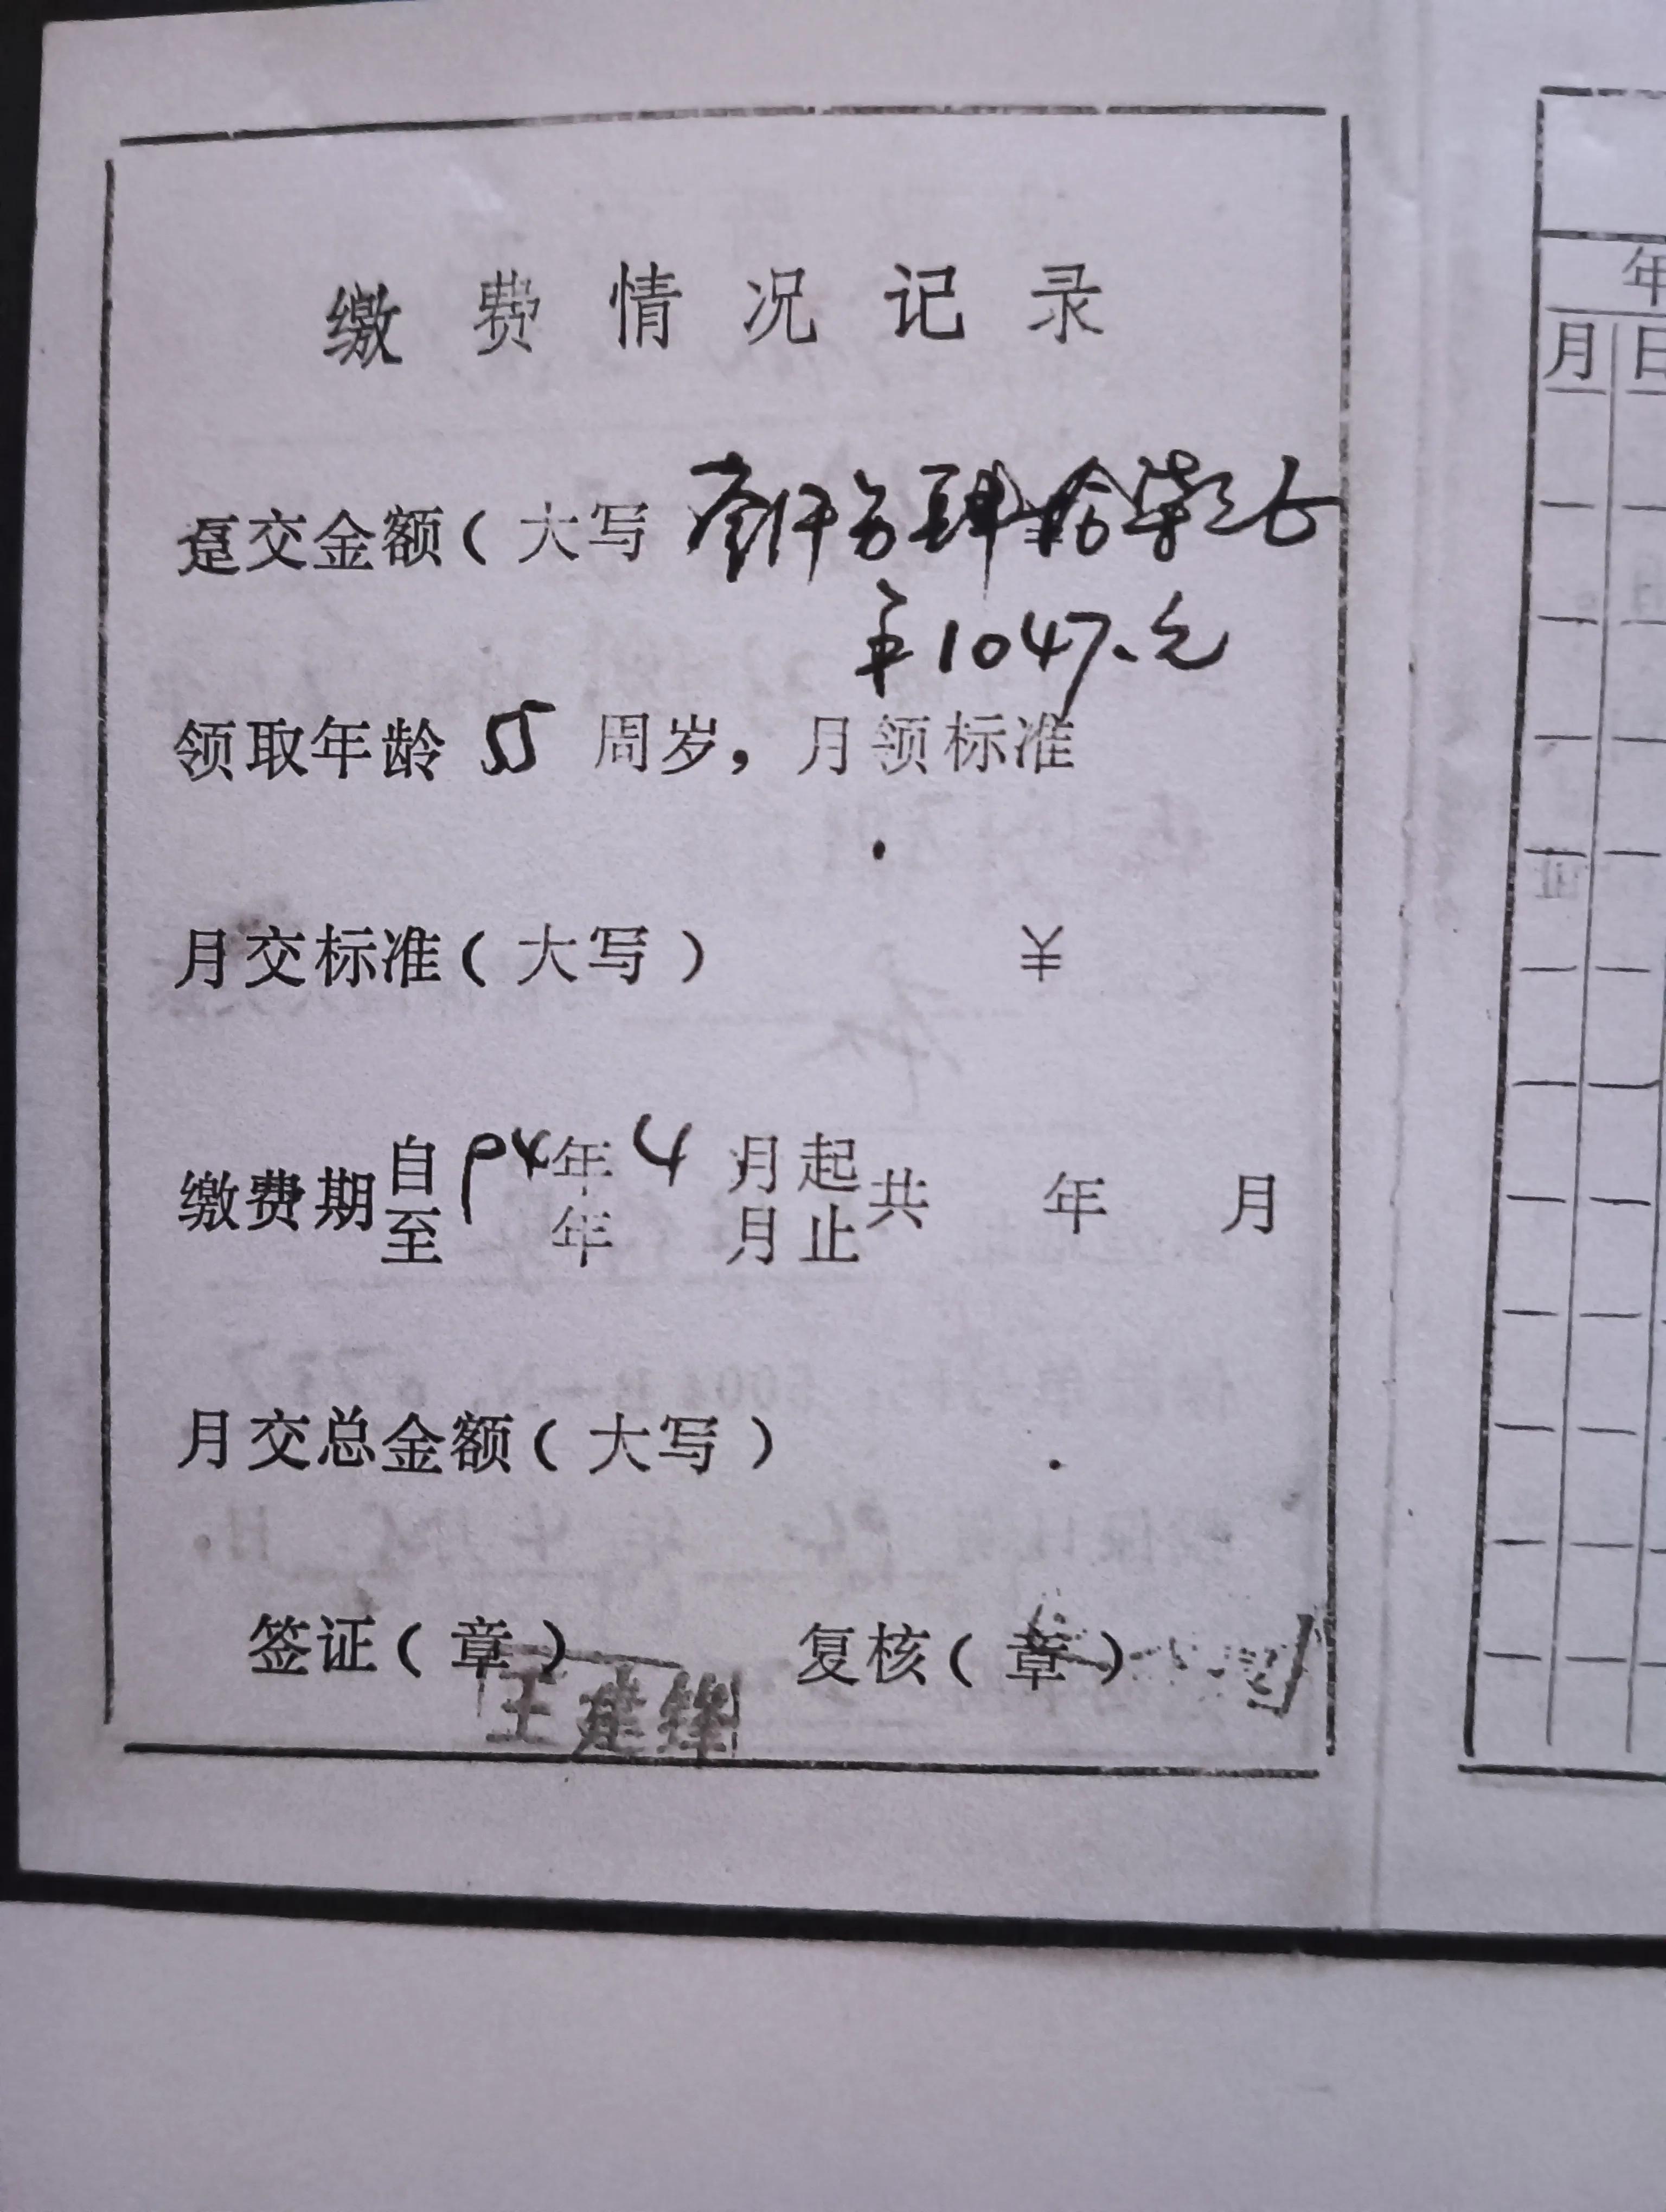 缴费情况记录
趸交金额（大写）壹仟另肆拾柒元
¥1047.元
领取年龄 55 周岁，月领标准
月交标准（大写） ¥
缴费期 自 94年 4 月起 共 年 月
至 年 月止
月交总金额（大写）
签证（章） 复核（章）
王建锋
年
月 日